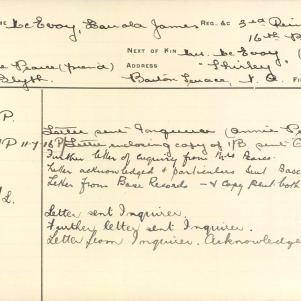 McEvoy, Harold James REG. &c 3rd Rein
16th B
NEXT OF KIN Mr. McEvoy (
Pearce (friend) ADDRESS "Shirley"
Blyth. Barton Terrace, N. A. FI
P.
Letter sent Inquirer (Annie P
P 11.7.16 P. Letter enclosing copy of 1/B sent
Further letter of inquiry from Miss Pearce.
Letter acknowledged & particulars sent Base
Letter from Base Records — & copy sent both
Letter sent Inquirer.
Further letter sent Inquirer.
Letter from Inquirer. Acknowledge